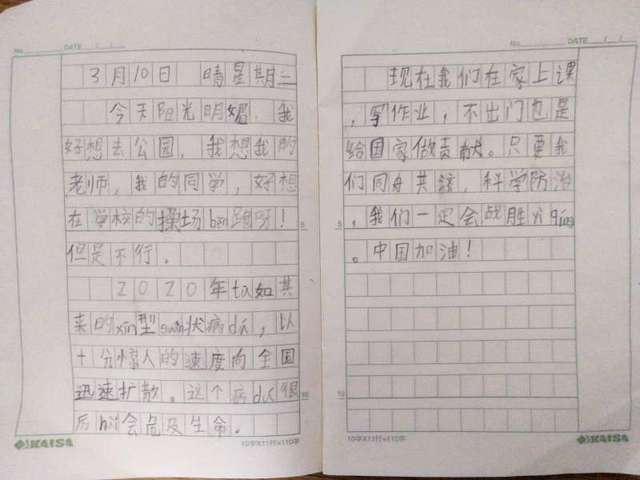 No. DATE / /
3月10日 晴星期二
今天阳光明媚，我
好想去公园，我想我的
老师，我的同学，好想
在学校的操场ben跑呀！
但是不行。
2020年tu如其
来的xin型guan状病du，以
十分惊人的速度向全国
迅速扩散。这个病du很
后hai会危及生命。
KAISA
No. DATE / /
现在我们在家上课
，写作业，不出门也是
给国家做贡献。只要我
们同舟共济，科学防治
，我们一定会战胜yi qing
。中国加油！
KAISA